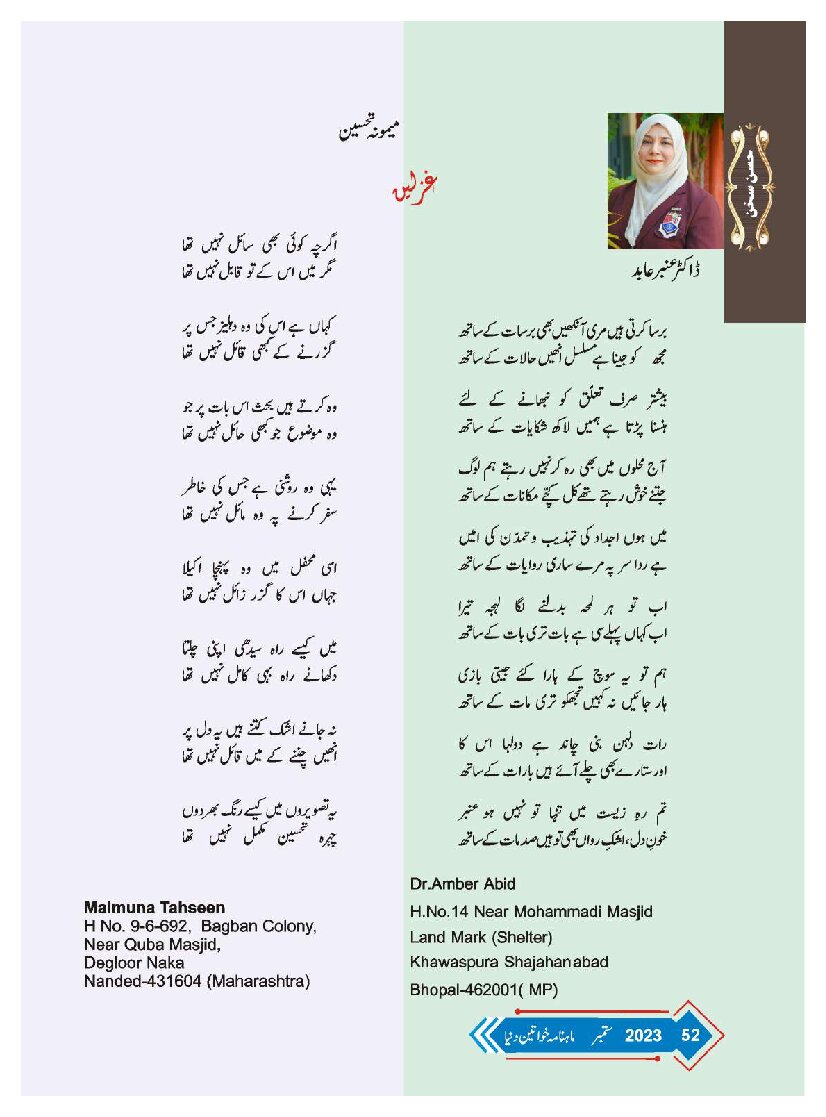 حسن سخن
غزلیں
ڈاکٹر عنبر عابد
برسا کرتی ہیں مری آنکھیں بھی برسات کے ساتھ
مجھ کو جینا ہے مسلسل انھیں حالات کے ساتھ
بیشتر صرف تعلّق کو نبھانے کے لئے
ہنسنا پڑتا ہے ہمیں لاکھ شکایات کے ساتھ
آج محلوں میں بھی رہ کر نہیں رہتے ہم لوگ
جتنے خوش رہتے تھے کل کچّے مکانات کے ساتھ
میں ہوں اجداد کی تہذیب و تمدّن کی امیں
ہے ردا سر پہ مرے ساری روایات کے ساتھ
اب تو ہر لمحہ بدلنے لگا لہجہ تیرا
اب کہاں پہلے سی ہے بات تری بات کے ساتھ
ہم تو یہ سوچ کے ہارا کئے جیتی بازی
ہار جائیں نہ کہیں تجھکو تری مات کے ساتھ
رات دلہن بنی چاند ہے دولہا اس کا
اور ستارے بھی چلے آئے ہیں بارات کے ساتھ
تم رہِ زیست میں تنہا تو نہیں ہو عنبر
خونِ دل، اشکِ رواں بھی تو ہیں صدمات کے ساتھ
Dr.Amber Abid
H.No.14 Near Mohammadi Masjid
Land Mark (Shelter)
Khawaspura Shajahanabad
Bhopal-462001( MP)
میمونہ تحسین
اگرچہ کوئی بھی سائل نہیں تھا
مگر میں اس کے تو قابل نہیں تھا
کہاں ہے اس کی وہ دہلیز جس پر
گزرنے کے کبھی قائل نہیں تھا
وہ کرتے ہیں بحث اس بات پر جو
وہ موضوع جو کبھی حائل نہیں تھا
یہی وہ روشنی ہے جس کی خاطر
سفر کرنے پہ وہ مائل نہیں تھا
اسی محفل میں وہ پہنچا اکیلا
جہاں اس کا گزر زائل نہیں تھا
میں کیسے راہ سیدھی اپنی چلتا
دکھانے راہ بھی کامل نہیں تھا
نہ جانے اشک کتنے ہیں یہ دل پر
انھیں چننے کے میں قائل نہیں تھا
یہ تصویروں میں کیسے رنگ بھردوں
چہرہ تحسین مکمل نہیں تھا
Maimuna Tahseen
H No. 9-6-692, Bagban Colony,
Near Quba Masjid,
Degloor Naka
Nanded-431604 (Maharashtra)
ماہنامہ خواتین دنیا ستمبر 2023 52